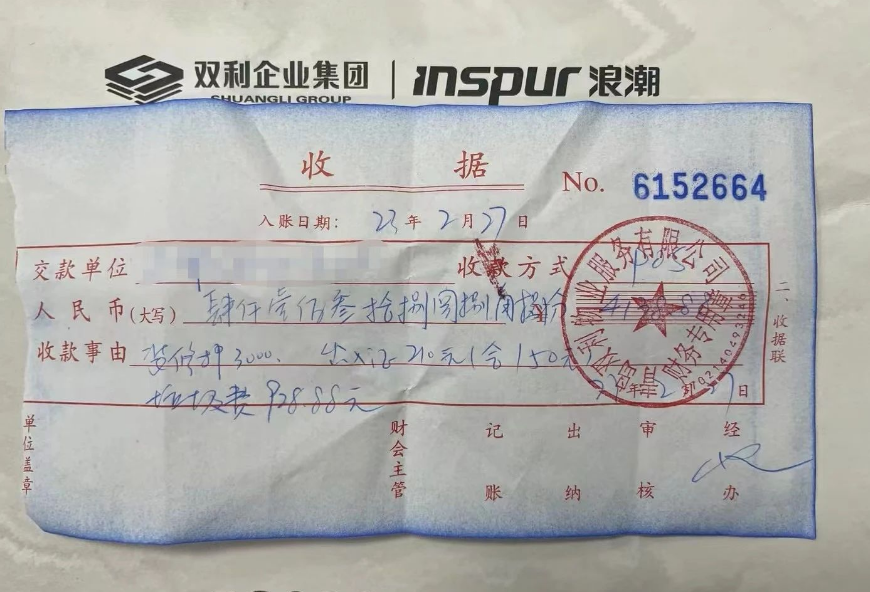 双利企业集团 | inspur 浪潮
SHUANGLI GROUP
收 据
No. 6152664
入账日期: 23 年 2 月 27 日
交款单位 收款方式 POS
人民币(大写) 肆仟壹佰叁拾捌圆捌角捌分
收款事由 装修押3000. 出入证210元(含150元
垃圾费 928.88元
年 2 27 日
二、收据联
双利物业服务有限公司
财务专用章
单位盖章 财会主管 记账 出纳 审核 经办